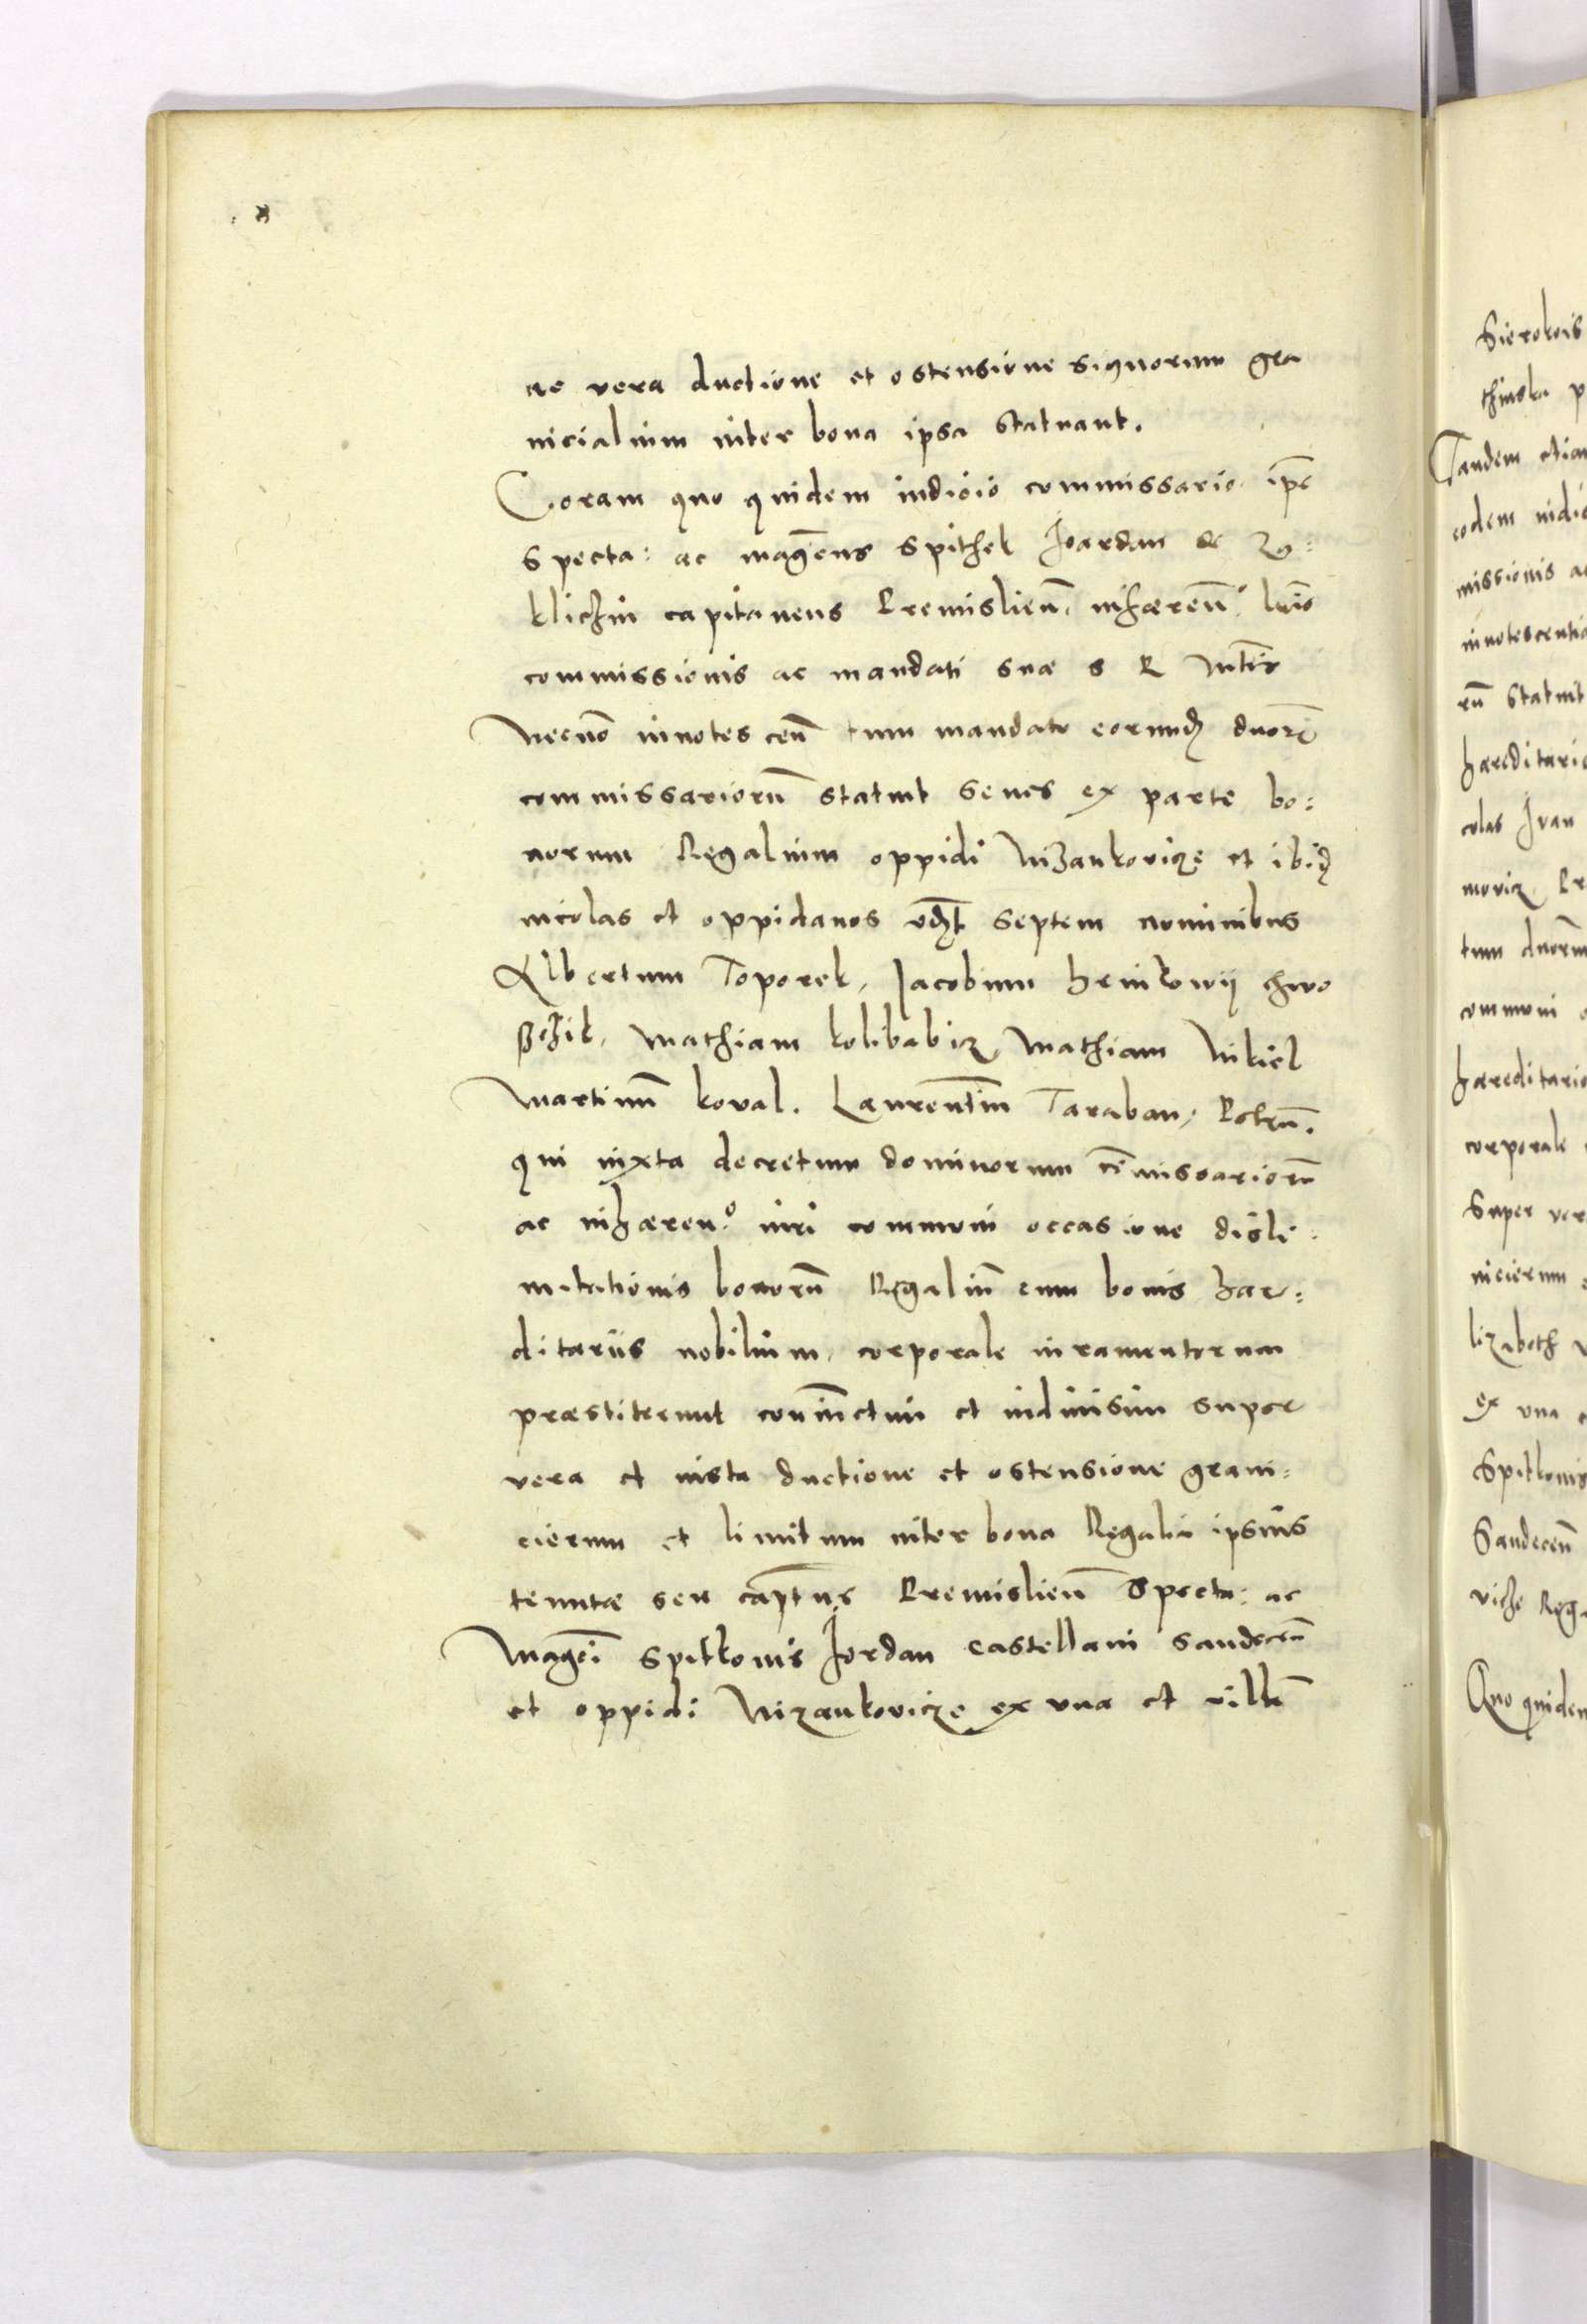 ac vera ductione et ostensione signorum gra
nicialium inter bona ipsa statuant.
Coram quo quidem iudicio commissario ip̄e
Specta: ac mag̅cus Spithek Joardan de Za:
klichin capitaneus Premislien̄. inhæren̄: l̅ris
commissionis ac mandati suæ S R M̅tis
necnō innotescen̄tum mandato eorundꝫ duorū
commissariorū statuit senes ex parte bo:
norum Regalium oppidi Nizankovicze et ibidꝫ
incolas et oppidanos vdꝫt septem nominibus
Albertum Toporek, Jacobum hrinkowij chvo
szczik, Mathiam kolibabicz, Mathiam Nikiel
Martinū koval. Laurentīum Taraban, Petrū.
qui iuxta decretum dominorum cōmissoariorū
ac inhæren.º iuri communi occasione disli:
mitationis bonorū Regaliū cum bonis hær:
ditariis nobilium, corporale iuramentorum
præstiterunt coniūctim et indiuisim super
vera et iusta ductione et ostensione grani:
cierum et limitum inter bona Regalia ipsius
tenutæ seu cap̅tus Premislien̄ Specta: ac
Mag̅ci Spitkonis Jordan Castellani Sandecen̄
et oppidi Nizankovicze ex una et villā
Sierokois
thinska p
Tandem etiam
eodem iudic
missionis ac
innotescentia
rū statuit
hæreditario
colas Ivan
movicz Pr
tum duorum
communi o
hæreditario
corporale
Super ver
nicierum
lizabeth
ex una
Spitkonis
Sandecen̄
viche Rega
Quo quidem